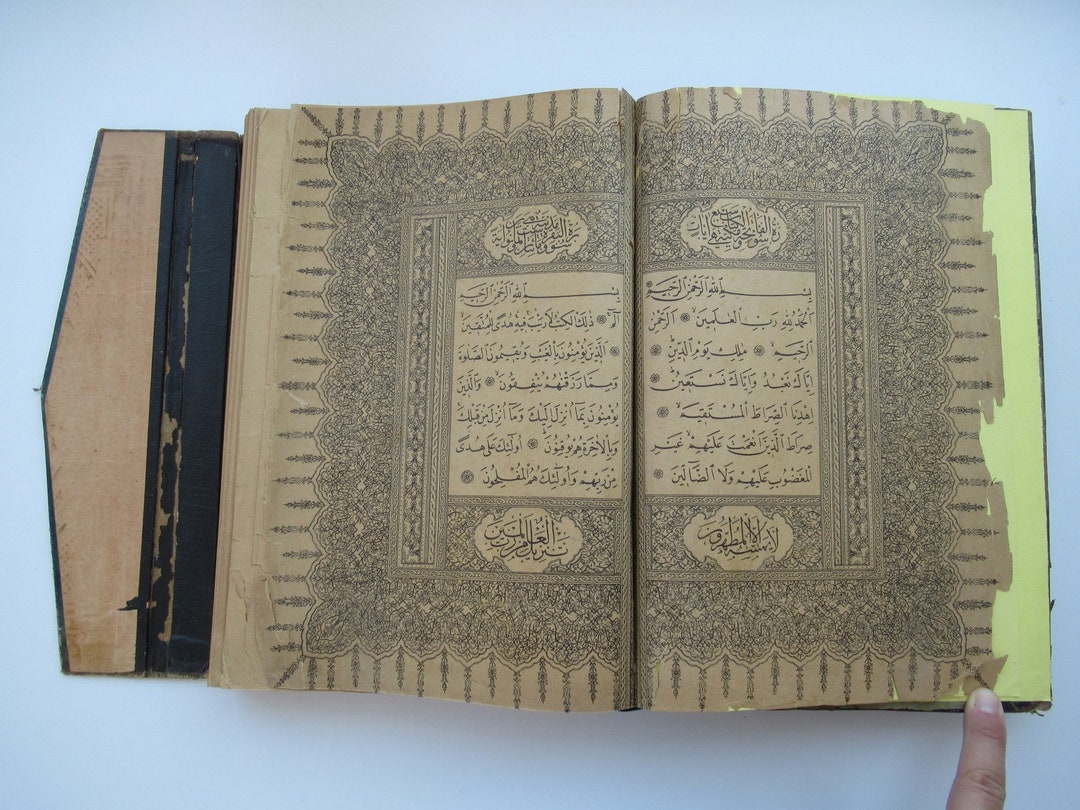 سورة الفاتحة
بِسْمِ اللهِ الرَّحْمٰنِ الرَّحِيمِ
اَلْحَمْدُ لِلّٰهِ رَبِّ الْعٰلَمِينَ ۞ اَلرَّحْمٰنِ
الرَّحِيمِ ۞ مٰلِكِ يَوْمِ الدِّينِ ۞
اِيَّاكَ نَعْبُدُ وَاِيَّاكَ نَسْتَعِينُ ۞
اِهْدِنَا الصِّرَاطَ الْمُسْتَقِيمَ ۞
صِرَاطَ الَّذِينَ اَنْعَمْتَ عَلَيْهِمْ غَيْرِ
الْمَغْضُوبِ عَلَيْهِمْ وَلَا الضَّالِّينَ ۞
لا يمسه الا المطهرون
سورة البقرة
بِسْمِ اللهِ الرَّحْمٰنِ الرَّحِيمِ
الٓمٓ ۞ ذٰلِكَ الْكِتٰبُ لَا رَيْبَ فِيهِ هُدًى لِلْمُتَّقِينَ
۞ اَلَّذِينَ يُؤْمِنُونَ بِالْغَيْبِ وَيُقِيمُونَ الصَّلٰوةَ
وَمِمَّا رَزَقْنٰهُمْ يُنْفِقُونَ ۞ وَالَّذِينَ
يُؤْمِنُونَ بِمَا اُنْزِلَ اِلَيْكَ وَمَا اُنْزِلَ مِنْ قَبْلِكَ
وَبِالْاٰخِرَةِ هُمْ يُوقِنُونَ ۞ اُولٰئِكَ عَلٰى هُدًى
مِنْ رَبِّهِمْ وَاُولٰئِكَ هُمُ الْمُفْلِحُونَ ۞
تنزيل من رب العالمين